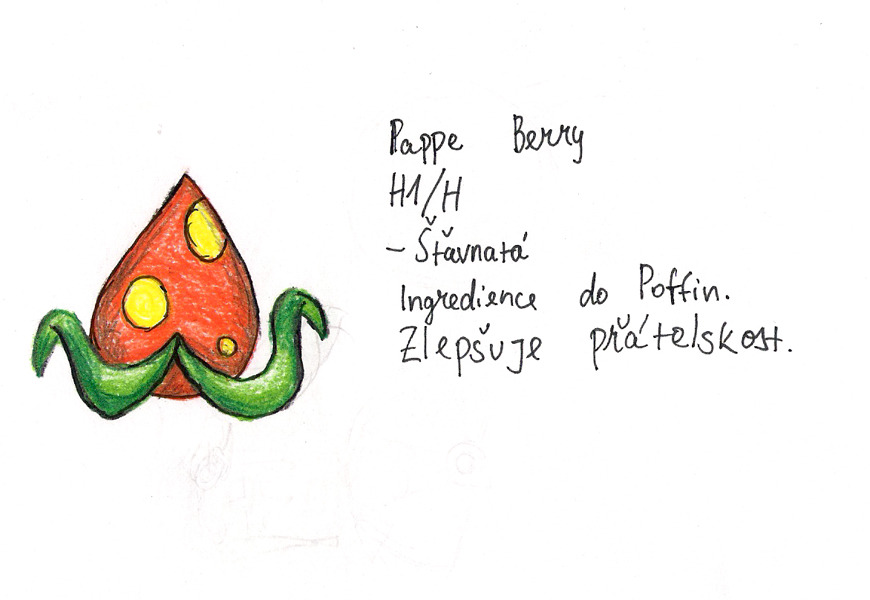 Pappe Berry
H1/H
- Šťavnatá
Ingredience do Poffin.
Zlepšuje přátelskost.